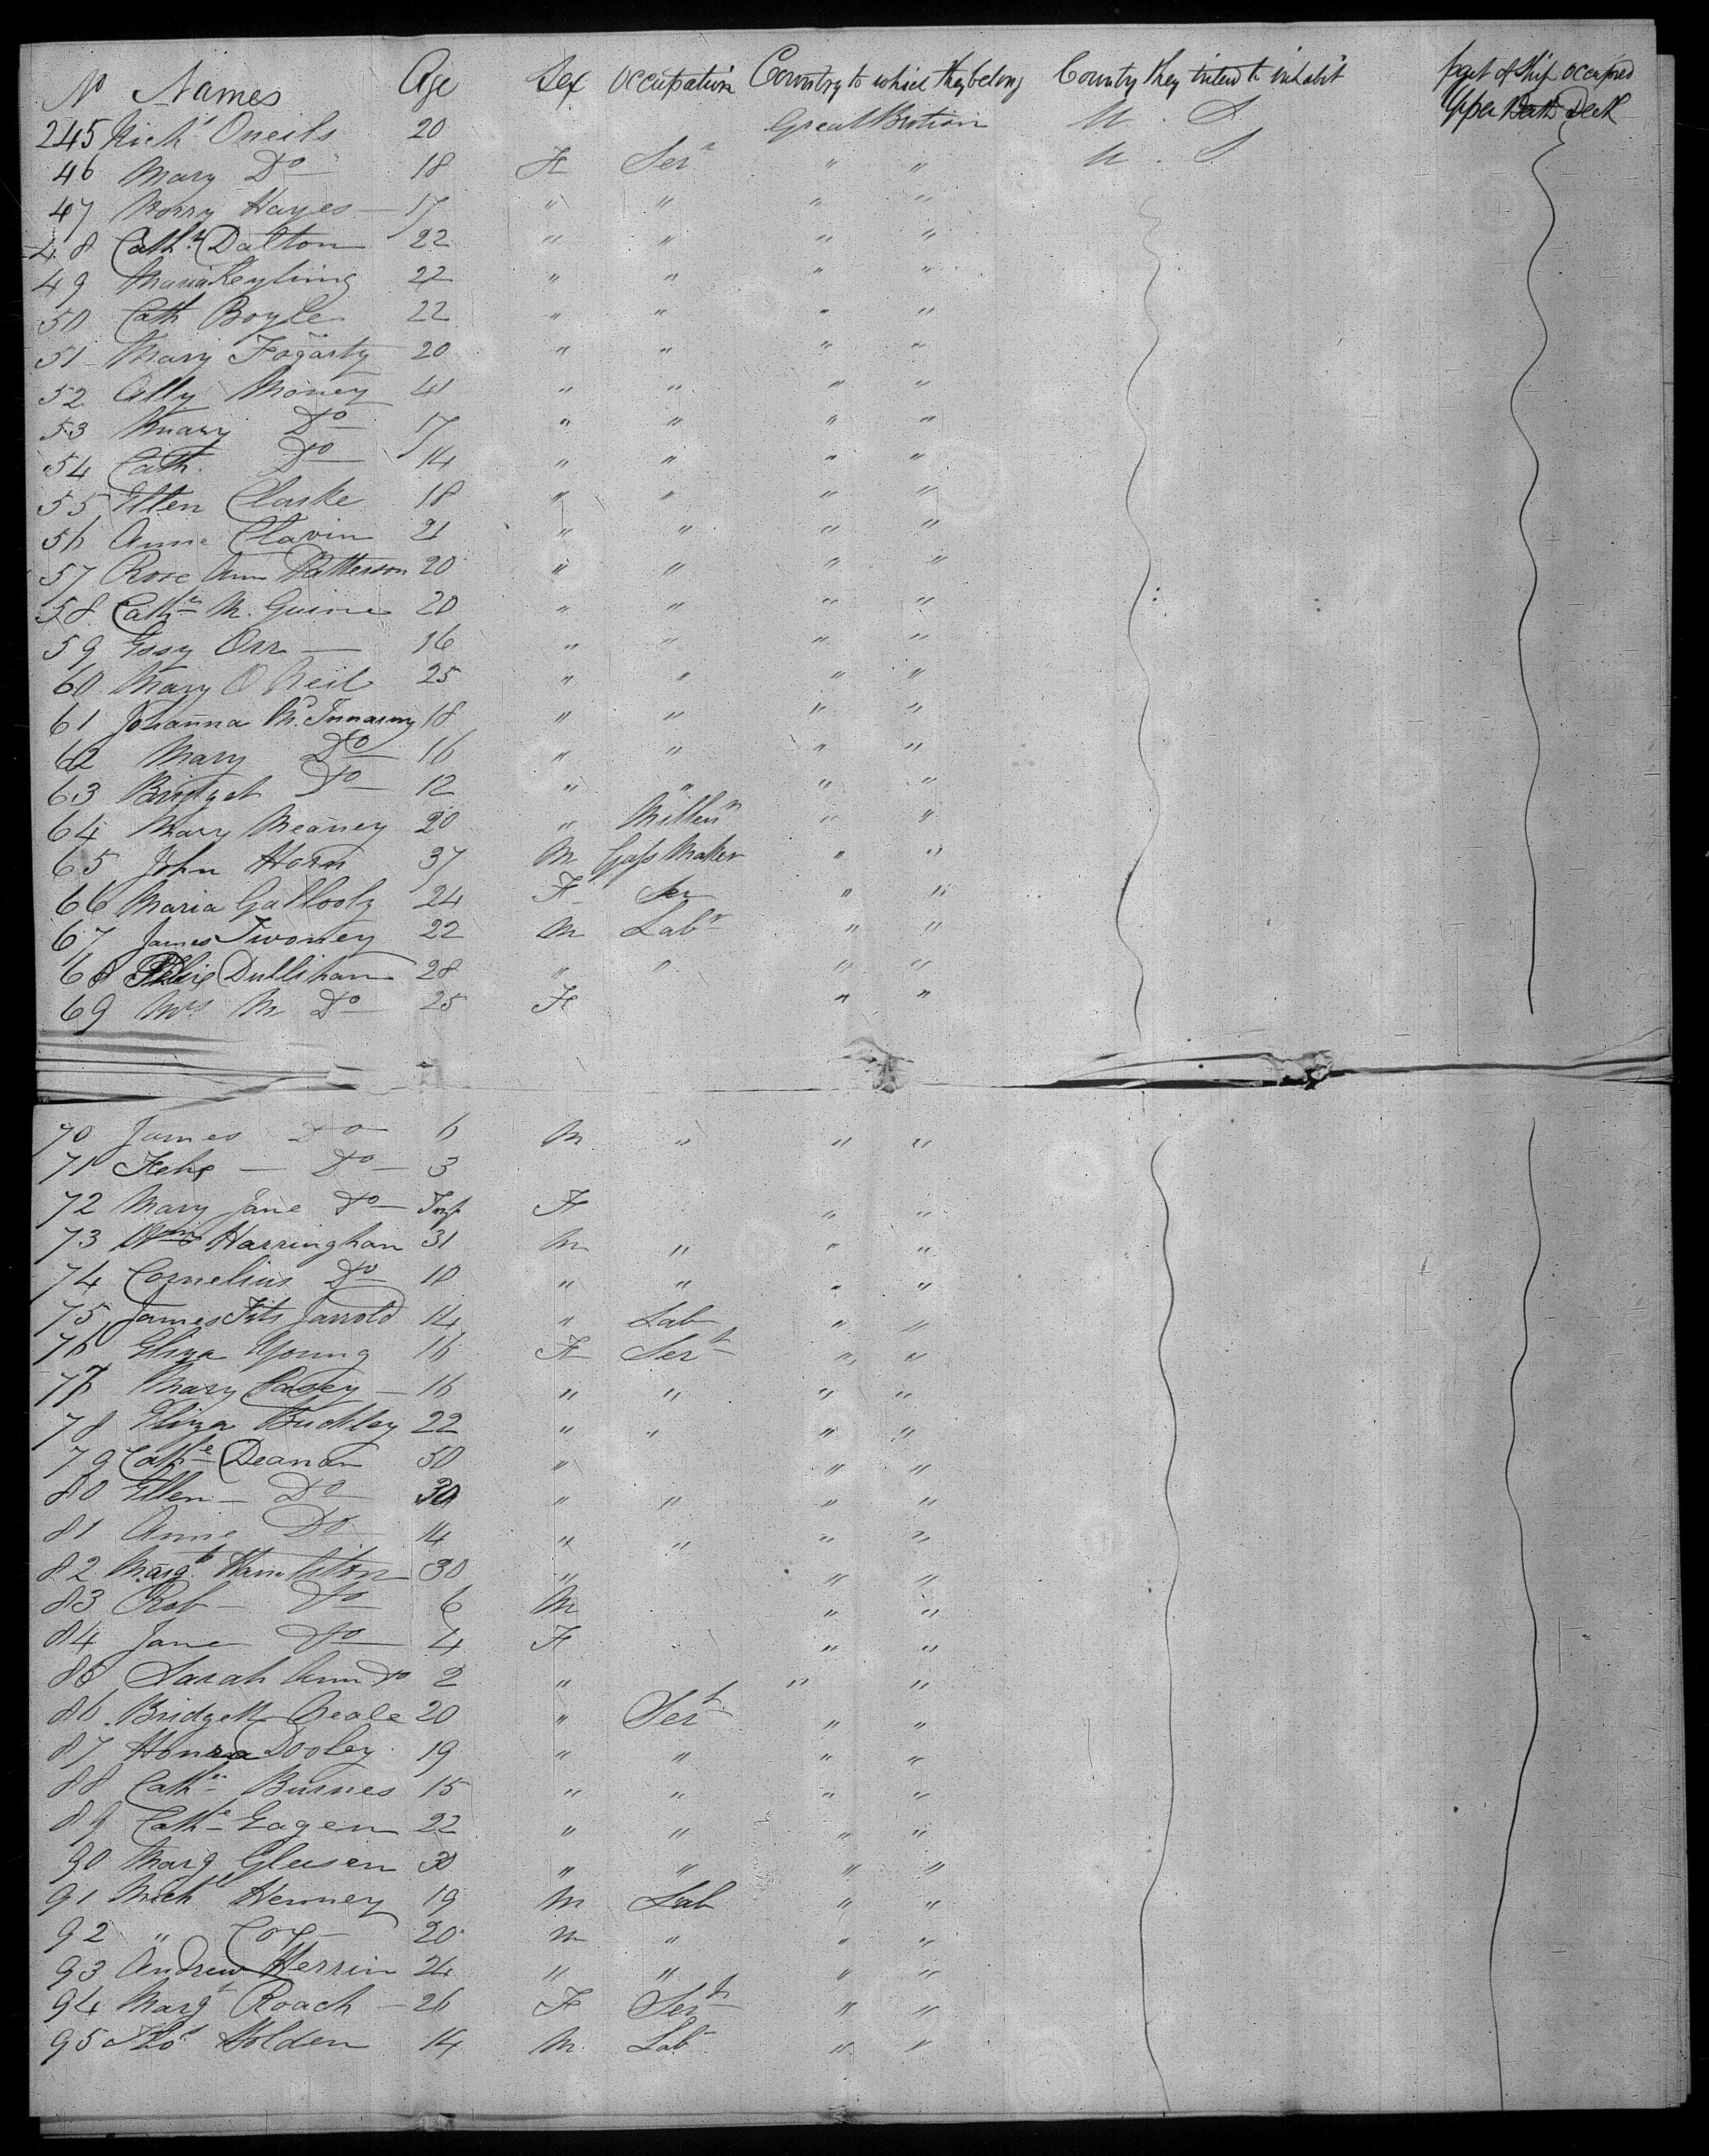 No Names Age Sex Occupation Country to which they belong Country they intend to inhabit part of Ship occupied
245 Richd Oneils 20 Great Brition U. S Upper Deck
46 Mary Do 18 F Sert " " U. S
47 Honry Hayes 17 " " " "
48 Cathe Dalton 22 " " " "
49 Maria Keyling 22 " " " "
50 Cath Boyle 22 " " " "
51 Mary Fogarty 20 " " " "
52 Ally Money 41 " " " "
53 Mary Do 17 " " " "
54 Cath. Do 14 " " " "
55 Ellen Clarke 18 " " " "
56 Anne Clavin 21 " " " "
57 Rose Ann Patterson 20 " " " "
58 Cathe M. Guine 20 " " " "
59 Essy Orr 16 " " " "
60 Mary O Neil 25 " " " "
61 Johanna Mc. 18 " " " "
62 Mary Do 16 " " " "
63 Bridget Do 12 " " " "
64 Mary Meaney 20 " " "
65 John Horn 37 M Gass Maker " "
66 Maria Gallooly 24 F Ser " "
67 James Twomey 22 M Labr " "
68 Felix Dullihan 28 " " " "
69 Mrs M Do 25 F " "
70 James Do 6 M " " "
71 Felix Do 3
72 Mary Jane Do Inft F " "
73 Harringhan 31 M " " "
74 Cornelius Do 10 " " " "
75 James Fits Jarrold 14 " Lab " "
76 Eliza Young 16 F Sert " "
77 Mary Casey 16 " " " "
78 Eliza Buckley 22 " " " "
79 Cathe Deanan 50 " " "
80 Ellen Do 30 " " " "
81 Anne Do 14 " " " "
82 Margt Hamilston 30 " " "
83 Rob Do 6 M " "
84 Jane Do 4 F " "
85 Sarah Ann Do 2 " " "
86 Bridgett Neale 20 " Sert " "
87 Honra Dooley 19 " " " "
88 Cathe Burnes 15 " " " "
89 Cathe Eagen 22 " " " "
90 Marg Gleesen 30 " " " "
91 Michl Henney 19 M Lab " "
92 " Coy 20 M " " "
93 Andrew Herrin 24 " " " "
94 Margt Roach 26 F Sert " "
95 Thos Holden 14 M Lab " "